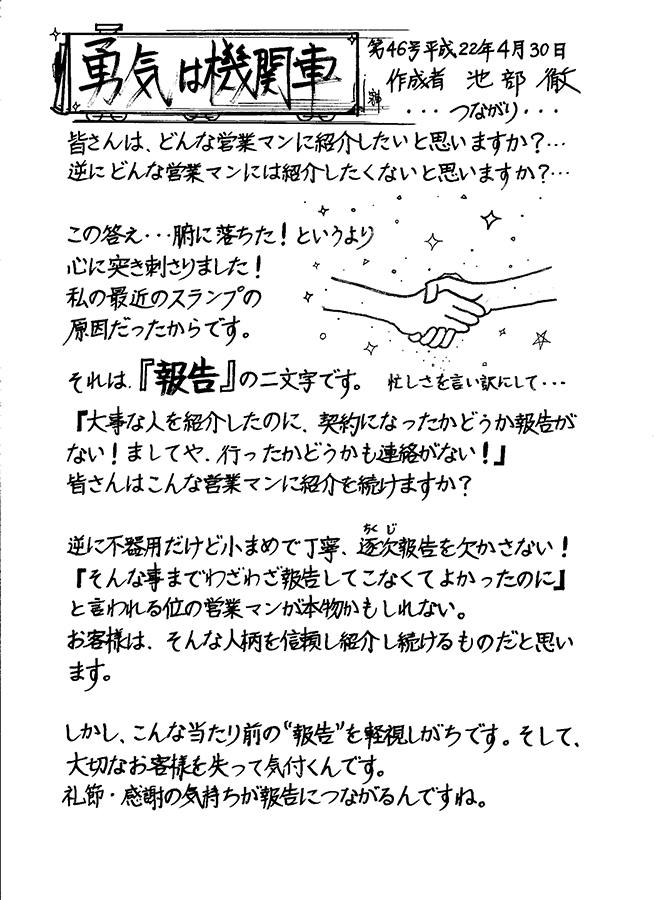 勇気は機関車
第46号平成22年4月30日
作成者 池部徹
・・・つながり・・・
皆さんは、どんな営業マンに紹介したいと思いますか?…
逆にどんな営業マンには紹介したくないと思いますか?…
この答え・・・腑に落ちた!というより
心に突き刺さりました!
私の最近のスランプの
原因だったからです。
それは、『報告』の二文字です。 忙しさを言い訳にして・・・
『大事な人を紹介したのに、契約になったかどうか報告が
ない!ましてや、行ったかどうかも連絡がない!』
皆さんはこんな営業マンに紹介を続けますか?
逆に不器用だけど小まめで丁寧、逐次報告を欠かさない!
ちくじ
『そんな事までわざわざ報告してこなくてよかったのに』
と言われる位の営業マンが本物かもしれない。
お客様は、そんな人柄を信頼し紹介し続けるものだと思い
ます。
しかし、こんな当たり前の“報告”を軽視しがちです。そして、
大切なお客様を失って気付くんです。
礼節・感謝の気持ちが報告につながるんですね。